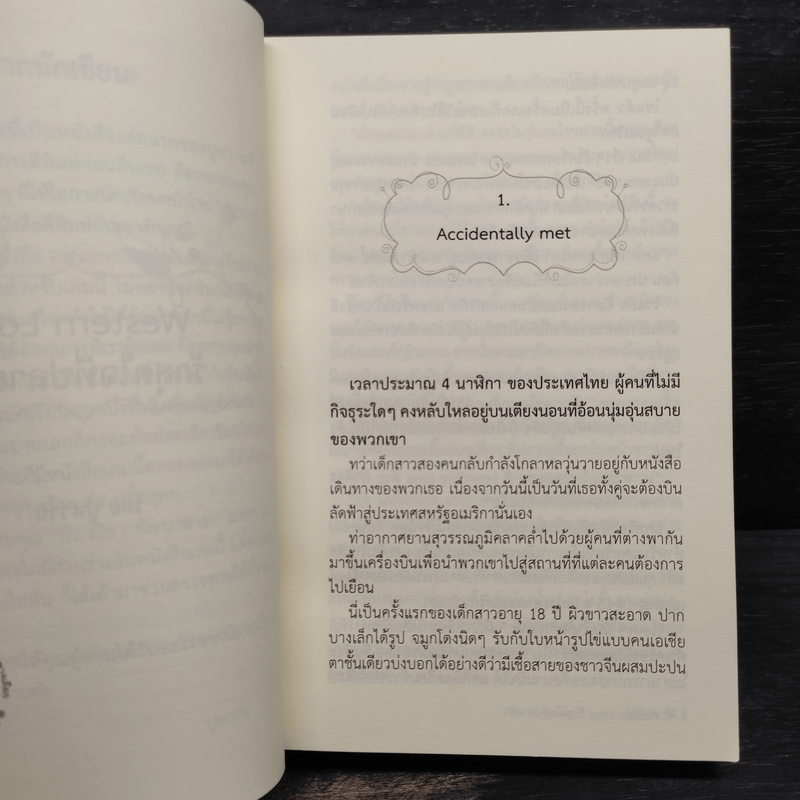 1.
Accidentally met
เวลาประมาณ 4 นาฬิกา ของประเทศไทย ผู้คนที่ไม่มี
กิจธุระใดๆ คงหลับใหลอยู่บนเตียงนอนที่อ้อนนุ่มอุ่นสบาย
ของพวกเขา
ทว่าเด็กสาวสองคนกลับกำลังโกลาหลวุ่นวายอยู่กับหนังสือ
เดินทางของพวกเธอ เนื่องจากวันนี้เป็นวันที่เธอทั้งคู่จะต้องบิน
ลัดฟ้าสู่ประเทศสหรัฐอเมริกานั่นเอง
ท่าอากาศยานสุวรรณภูมิคลาคล่ำไปด้วยผู้คนที่ต่างพากัน
มาขึ้นเครื่องบินเพื่อนำพวกเขาไปสู่สถานที่ที่แต่ละคนต้องการ
ไปเยือน
นี่เป็นครั้งแรกของเด็กสาวอายุ 18 ปี ผิวขาวสะอาด ปาก
บางเล็กได้รูป จมูกโด่งนิดๆ รับกับใบหน้ารูปไข่แบบคนเอเชีย
ตาชั้นเดียวบ่งบอกได้อย่างดีว่ามีเชื้อสายของชาวจีนผสมปะปน